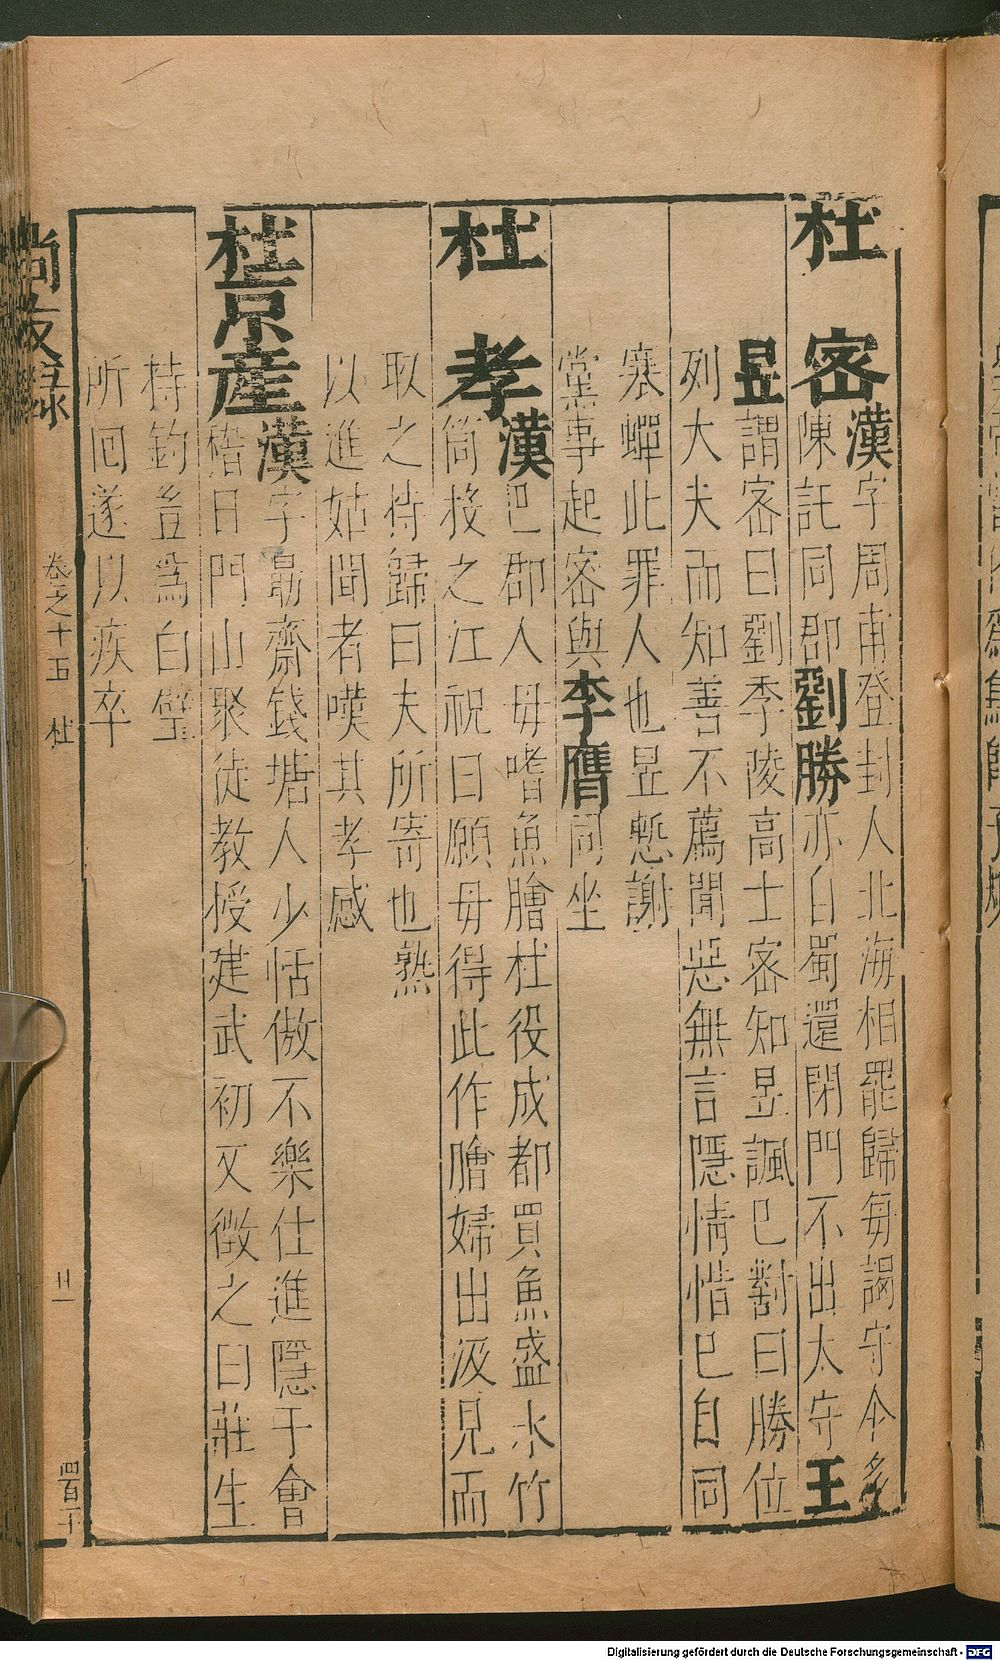 杜密
漢字周甫登封人北海相罷歸每謁守令多
陳託同郡劉勝亦自蜀還閉門不出太守王
昱謂密曰劉季陵高士密知昱諷己對曰勝位
列大夫而知善不薦聞惡無言隱情惜己自同
寒蟬此罪人也昱慙謝
黨事起密與李膺同坐
杜孝
漢巴郡人母嗜魚膾杜役成都買魚盛水竹
筒投之江祝曰願母得此作膾婦出汲見而
取之待歸曰夫所寄也熟
以進姑聞者嘆其孝感
杜京產
漢字景齋錢塘人少恬傲不樂仕進隱于會
稽日門山聚徒教授建武初又徵之曰莊生
持釣豈為白璧
所回遂以疾卒
尚友錄
卷之十五
杜
廿一
Digitalisierung gefördert durch die Deutsche Forschungsgemeinschaft - DFG